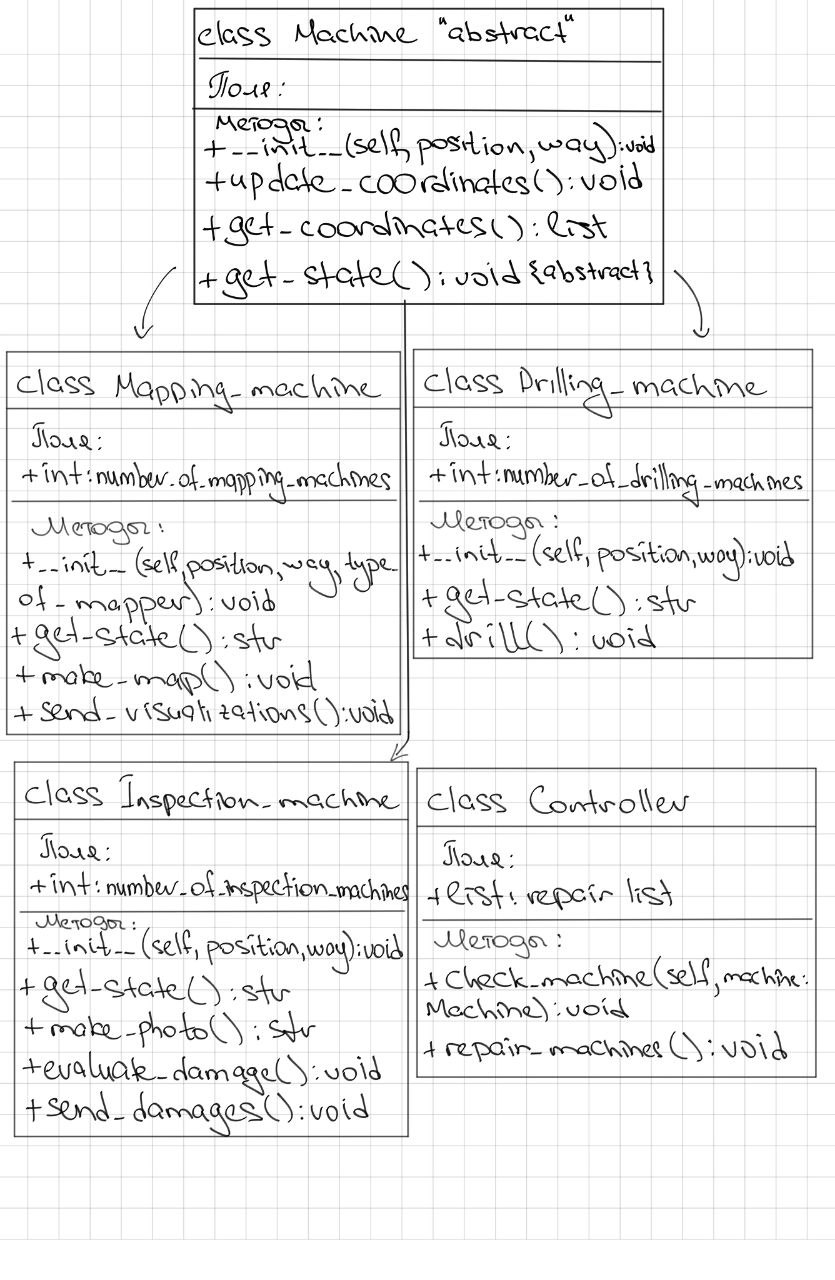 class Machine "abstract"
Поля:
Методы:
+__init__(self, position, way):void
+update_coordinates():void
+get_coordinates():list
+get_state():void {abstract}
class Mapping_machine
Поля:
+int:number_of_mapping_machines
Методы:
+__init__(self,position,way,type_
of_mapper):void
+get_state():str
+make_map():void
+send_visualizations():void
class Drilling_machine
Поля:
+int:number_of_drilling_machines
Методы:
+__init__(self, position,way):void
+get_state():str
+drill():void
class Inspection_machine
Поля:
+int:number_of_inspection_machines
Методы:
+__init__(self, position,way):void
+get_state():str
+make_photo():str
+evaluate_damage():void
+send_damages():void
class Controller
Поля:
+list: repair list
Методы:
+check_machine(self,machine:
Machine):void
+repair_machines():void